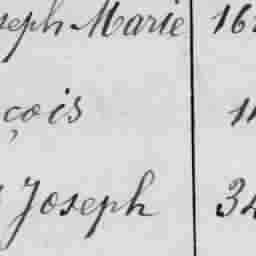 seph Marie 162
çois 11
Joseph 34